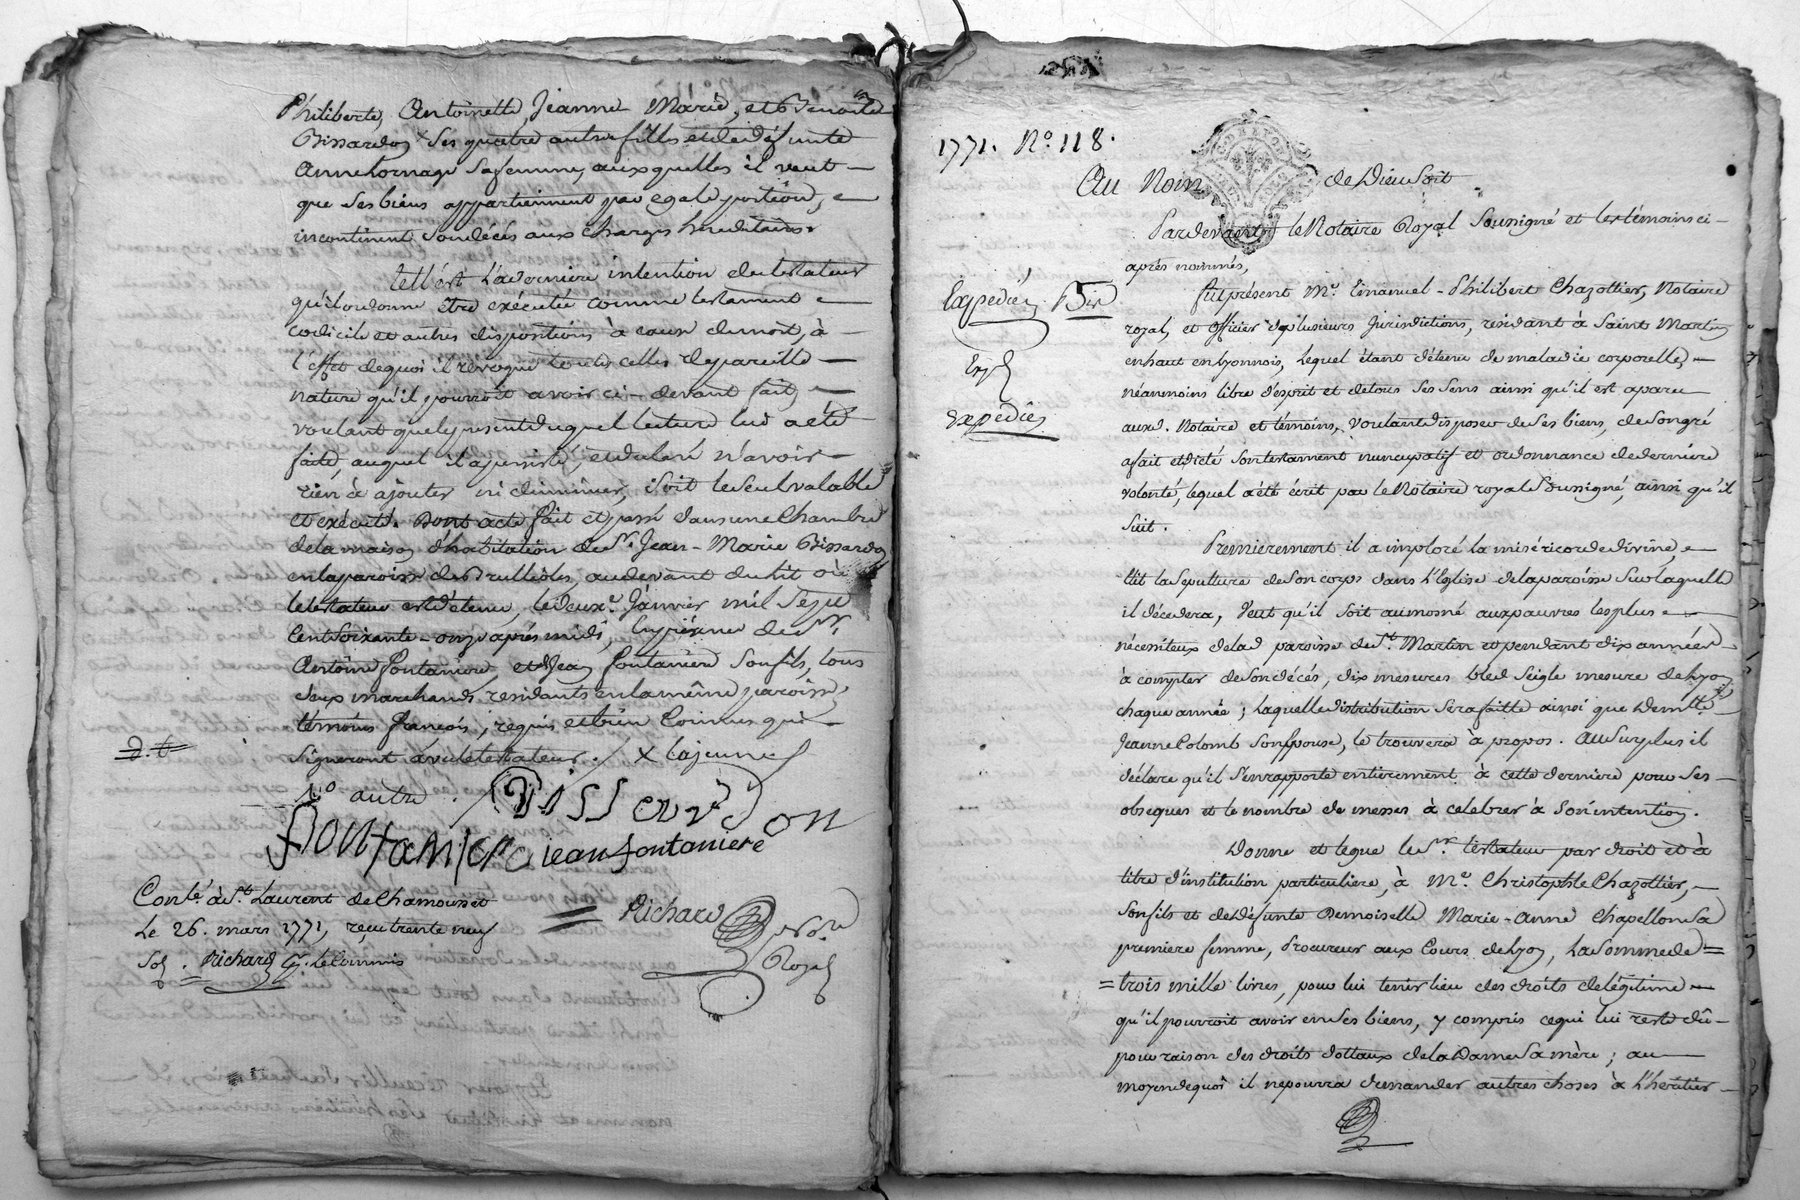 Philiberte, Antoinette, Jeanne Marie, et Benoite
Bissardon x ses quatre autres filles et de défunte
Anne Cornage sa femme, auxquelles il veut —
que ses biens appartiennent par egale portion, —
incontinent son décés aux charges hereditaires.
Tell'ést la derniere intention du testateur
qu'il ordonne être exécutée comme testament —
codicile et autres dispositions à cause de mort, à —
l'effet de quoi il révoque toutes celles de pareille —
nature qu'il pourroit avoir ci-devant fait, —
voulant que le present duquel lecture lui a été
faite, auquel il a persisté, et déclaré n'avoir —
rien à ajouter ni diminuer, soit le seul valable
et exécuté. Dont acte fait et passé dans une chambre
de la maison d'habitation du Sr. Jean-Marie Bissardon
en la paroisse de Brullioles, au devant du lit où
le testateur est détenu, le deuxe. Janvier mil sept
cent soixante-onze après midi, en présence de Sr.
Antoine Fontaniere et Jean Fontaniere son fils, tous
deux marchands residants en la même paroisse,
témoins requis et bien connus qui —
signeront avec le testateur. / x la jeune
d. t.
1o autre. / Bissardon
Fontaniere jean fontaniere
Conlé. à St. Laurent de Chamousset
Le 26. mars 1771, reçu trente neuf
sols. Richard G. le Commis
= Richard
Nore.
Royal
1771. No. 118.
Au Nom de Dieu Soit
Pardevant le Notaire Royal Soussigné et les témoins ci-
aprés nommés,
Expédiée Bis
Exp
Expédiée
fut présent Me. Emanuel-Philibert Chazottier, Notaire
royal, et officier de plusieurs Jurisdictions, residant à Saint Martin
en haut en Lyonnois, lequel étant détenu de maladie corporelle, —
néanmoins libre d'esprit et de tous ses sens ainsi qu'il est aparu
auxd. Notaire et témoins, voulant disposer de ses biens, de son gré
a fait et dicté son testament nuncupatif et ordonnance de derniére
volonté, lequel a été écrit par le Notaire royal Soussigné, ainsi qu'il
suit.
Premierement il a imploré la miséricorde divine, —
Elit la sepulture de son corps dans l'Eglise de la paroisse sur laquelle
il décedera, Veut qu'il soit aumosné aux pauvres les plus —
nécessiteux de lad. paroisse de St. Martin et pendant dix années —
à compter de son décés, dix mesures bled seigle mesure de Lyon
chaque année ; laquelle distribution sera faitte ainsi que Demlle.
Jeanne Colomb son Epouse, le trouvera à propos. Au surplus il
déclare qu'il s'en rapporte entierement à cette derniere pour ses —
obseques et le nombre de messes à celebrer à son intention.
Donne et legue le Sr. testateur par droit et à
titre d'institution particuliere, à Me. Christophle Chazottier, —
son fils et de défunte Demoiselle Marie-Anne Chapellon sa
premiere femme, Procureur aux Cours de Lyon, la somme de =
= trois mille livres, pour lui tenir lieu des droits de légitime —
qu'il pourroit avoir en ses biens, y compris ce qui lui reste dû —
pour raison des droits dottaux de la Dame sa mère ; au —
moyen de quoi il ne pourra demander autres choses à l'heritier —